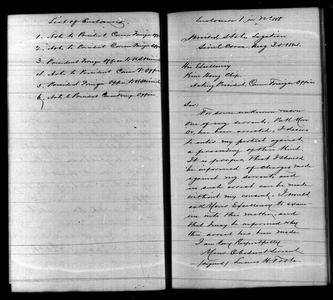 List of Enclosures
1. Note to President Corean Foreign Office
2. Note to President Corean Foreign Office
3. President Foreign Office to U.S. Minister
4. Note to President Corean F. Office
5. President Foreign Office to U.S. Minister
6. Note to President Corean Foreign Office
Enclosure 1 in No
United States Legation
Seoul Corea Aug 1884
His Excellency
Acting President Corean Foreign Office
Sir:
For some unknown reason
one of my servants,
has been arrested. I desire
to enter my protest against
a proceeding of this kind.
It is proper that I should
be informed of charges made
against my servants and
no such arrest can be made
without my consent. I would
ask Your Excellency to exam-
ine into this matter, and
that I may be informed why
this arrest has been made.
I am Very Respectfully
Your Obedient Servant
(signed) Lucius H. Foote